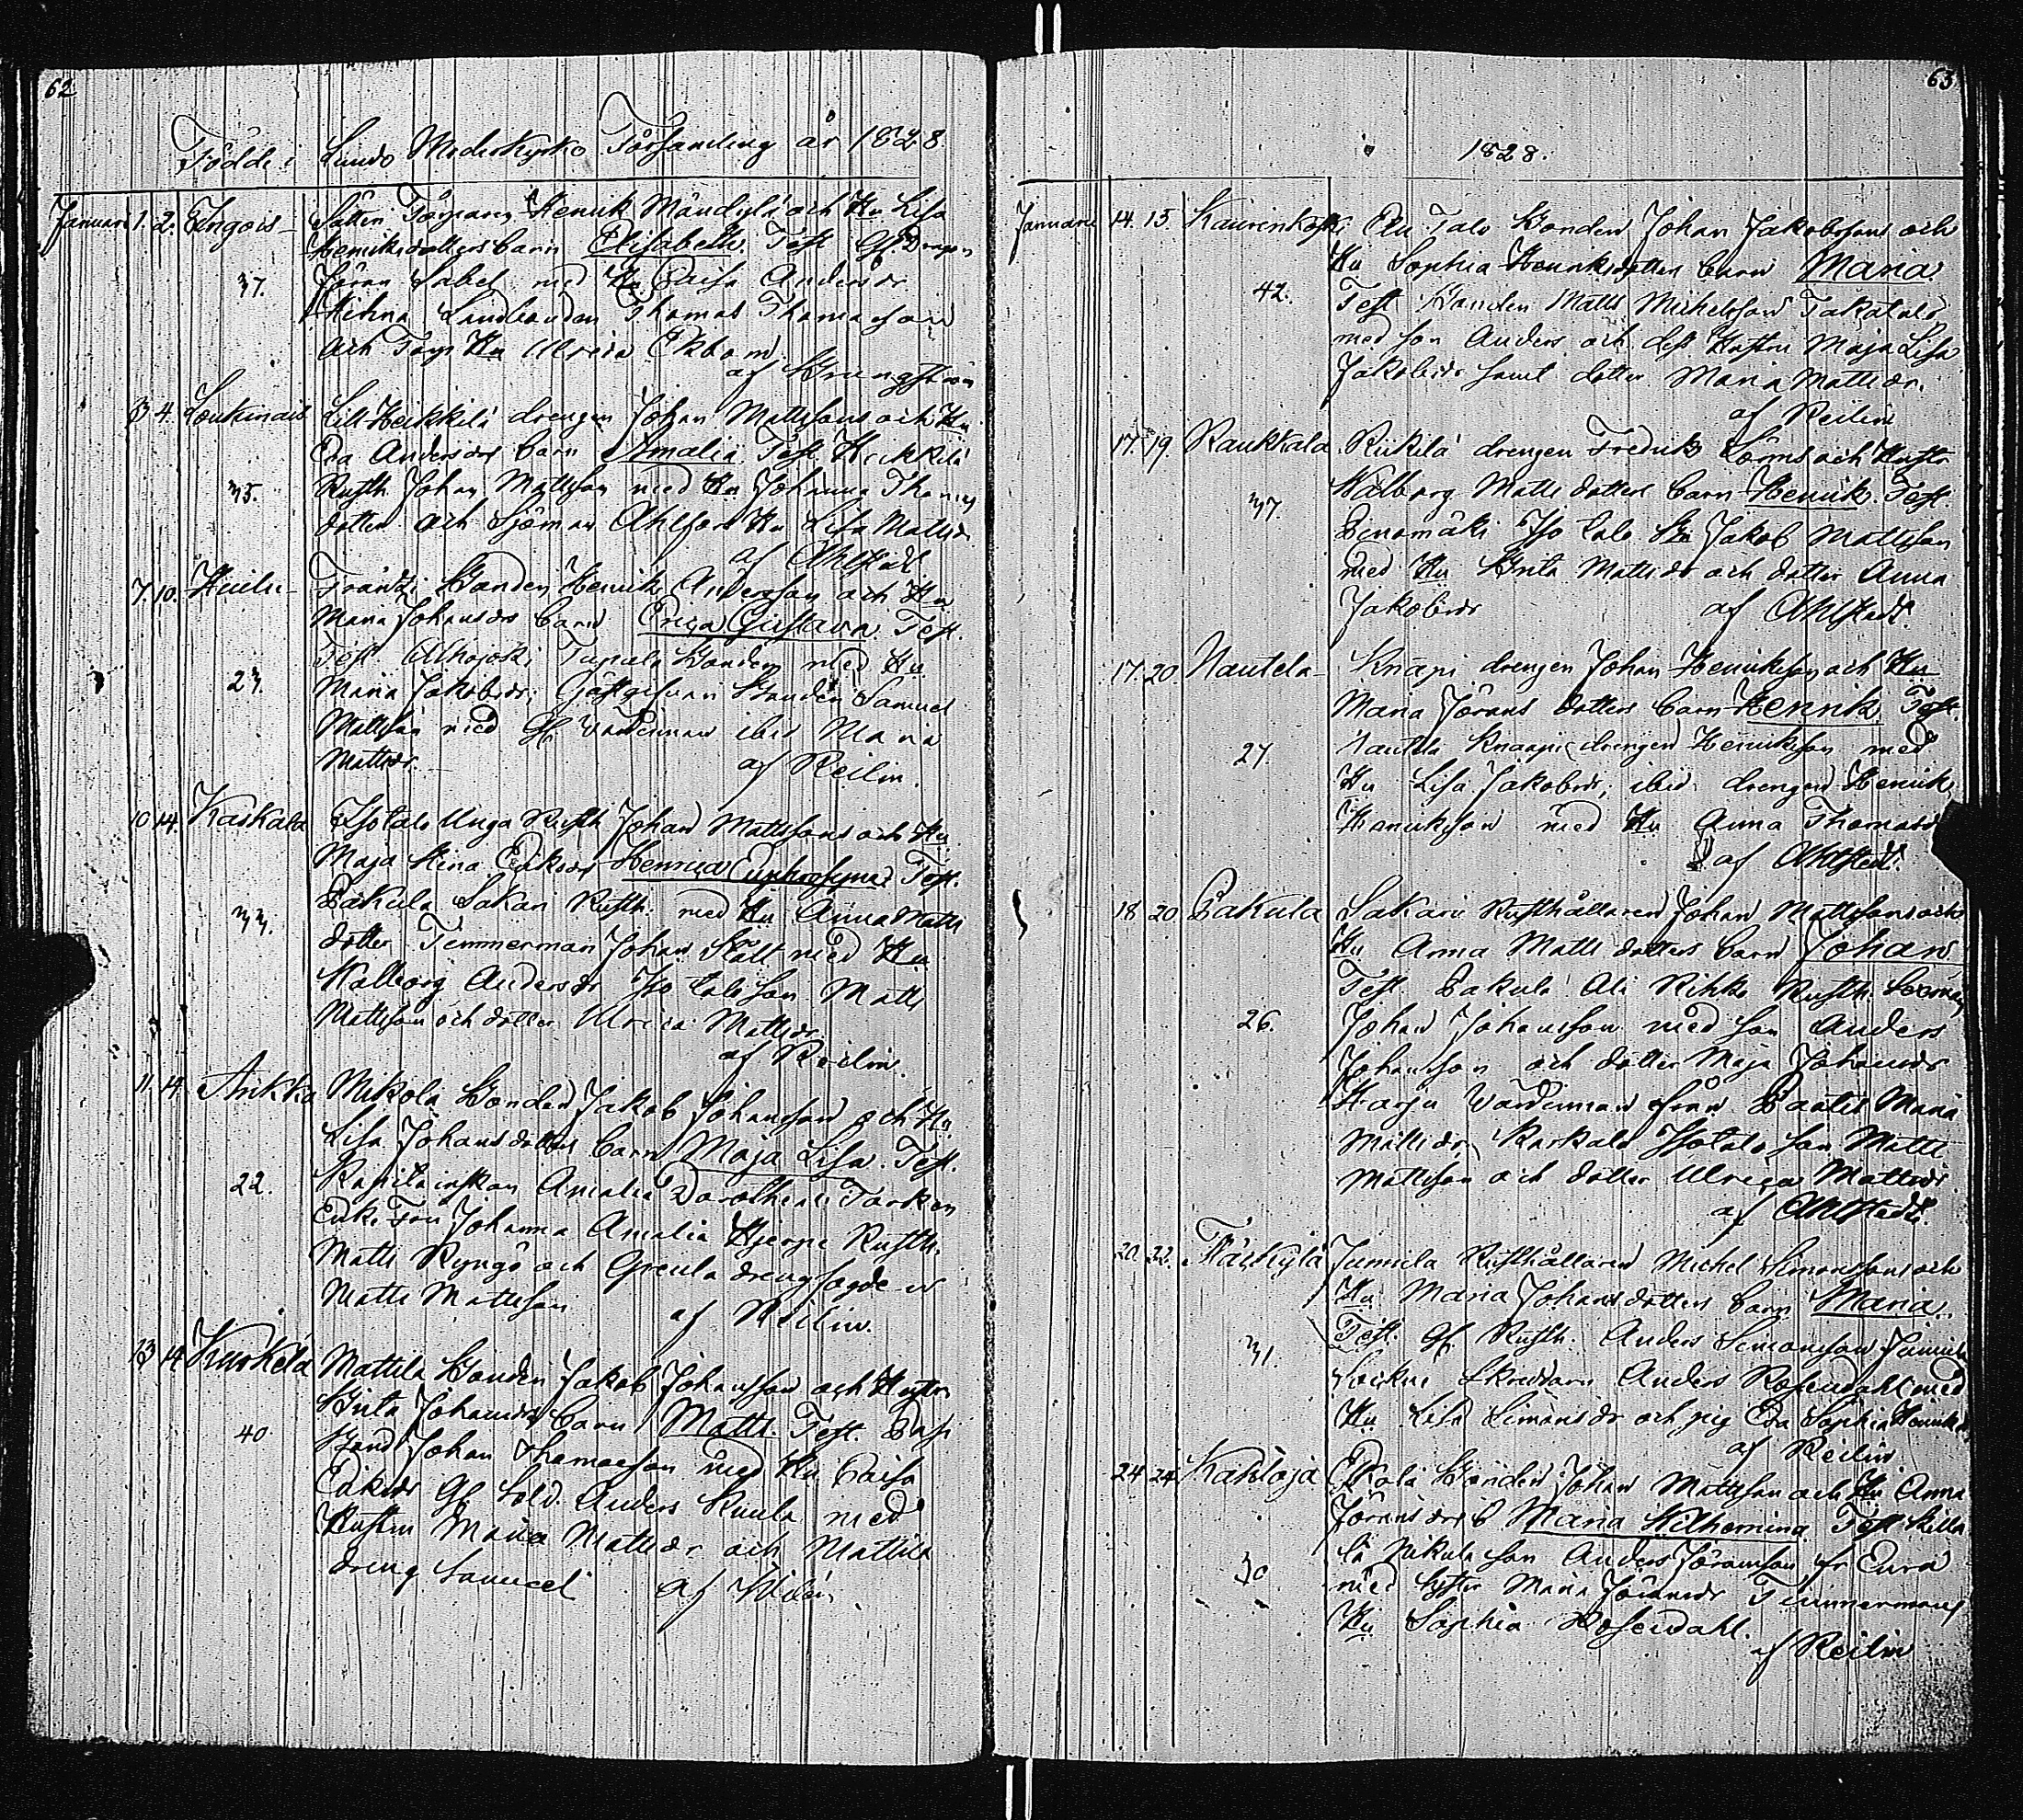 62
Födde i Lundo Moderkyrko Församling år 1828.
Januari 1. 2. Tingois Sätteri Torparen Henrik Mäntylä och Hu Lisa
Henriksdotters barn Elisabeth. Test. Gl. Dragon
37. Jöran Sabel med Hu Caisa Andersdr
Landbonden Thomas Thomasson
och Torp. Hu Ulrica Ekbom.
af Bergström
3 4. Loukinais Lill Heikkilä drengen Johan Mattssons och Hu
Eva Andersdrs barn Amalia. Test. Heikkilä
35. Rusth. Johan Mattsson med Hu Johanna Thomas
dotter och Sjöman Ahlfors Hu Lisa Mattsdr
af Ahlstedt
7. 10. Frantzi Bonden Henrik Andersson och Hu
Maria Johansdrs barn Erica Gustava. Test.
Test. Alhojoki Tapala Bonden med Hu
23. Maria Jakobsdr; Gästgifvari Bonden Samuel
Mattsson med Gl. Värdinnan ibid Maria
Mattsdr. af Reilin.
10 14. Kaskala Isotalo Unga Rusth. Johan Mattssons och Hu
Maja Stina Eriksdrs Henrica Euphrosyna. Test.
Pakula Sakari Rusth. med Hu Anna Matts
33. dotter Timmerman Johan Slätt med Hu
Walborg Andersdr Iso talo son Matts
Mattsson och dotter Ulrica Mattsdr
af Reilin.
11. 14. Ankka Mikola Bonden Jakob Johansson och Hu
Lisa Johansdotters barn Maja Lisa. Test.
22. Kapitainskan Amalia Dorothea Tarkén
Enke Fru Johanna Amalia Hjerpe Rusth.
Matts Ryngö och Greula drengfogden
Matts Mattsson af Reilin.
13 14 Kurkela Mattila Bonden Jakob Johansson och Hustru
Brita Johansdrs barn Matts. Test.
40 Bond Johan Thomasson med Hu Caisa
Eriksdr Gl. Sold. Anders Kuula med
Hustru Maria Mattsdr och Mattila
dreng Samuel af
63
1828.
Januari 14. 15. Kaurinkoski Ala Talo Bonden Johan Jakobssons och
Hu Sophia Henriksdotters barn Maria.
42. Test. Bonden Matts Michelsson Takatalo
med son Anders och dess Hustru Maja Lisa
Jakobsdr samt dotter Maria Mattsdr.
af Reilin
17. 19. Raukkala Riikilä drengen Fredrik Löfms och Hustru
Walborg Mattsdotters barn Henrik. Test.
37. Iso talo Bn Jakob Mattsson
med Hu Brita Mattsdr och dotter Anna
Jakobsdr af Ahlstedt.
17. 20 Nautela Knapi drengen Johan Henrikssons och Hu
Maria Jörans dotters barn Henrik Test.
27. Nautela Knaapi drengen Henriksson med
Hu Lisa Jakobsdr, ibid. drengen Henrik
Henriksson med Hu Anna Thomasdr
af Ahlstedt.
18 20. Pakula Sakari Rusthållaren Johan Mattssons och
Hu Anna Matts dotters barn Johan
Test. Pakula Ali Rihko Rusth.
26. Johan Johansson med son Anders
Johansson och dotter Maja Johansdr
Harju Värdinnan från Paatis Maria
Mattsdr, Kaskala Isotalo son Matts
Mattsson och dotter Ulrica Mattsdr
af Ahlstedt.
20. 22. Jumila Rusthållaren Michel Simonssons och
Hu Maria Johansdotters barn Maria.
31. Test. Gl. Rusth. Anders Simonsson Jumila
Sockne Skreddaren Anders Rosendahl med
Hu Lisa Simonsdr och pig. Eva Sophia Henriksdr
af Reilin
24 24 Kakloja Bonden Johan Mattsson och Hu Anna
Jöransdrs b Maria Wilhemina Test.
30 Nikula son Anders Jöransson fr Eura
med Syster Maria Jöransdr Timmermans
Hu Sophia Rosendahl.
af Reilin